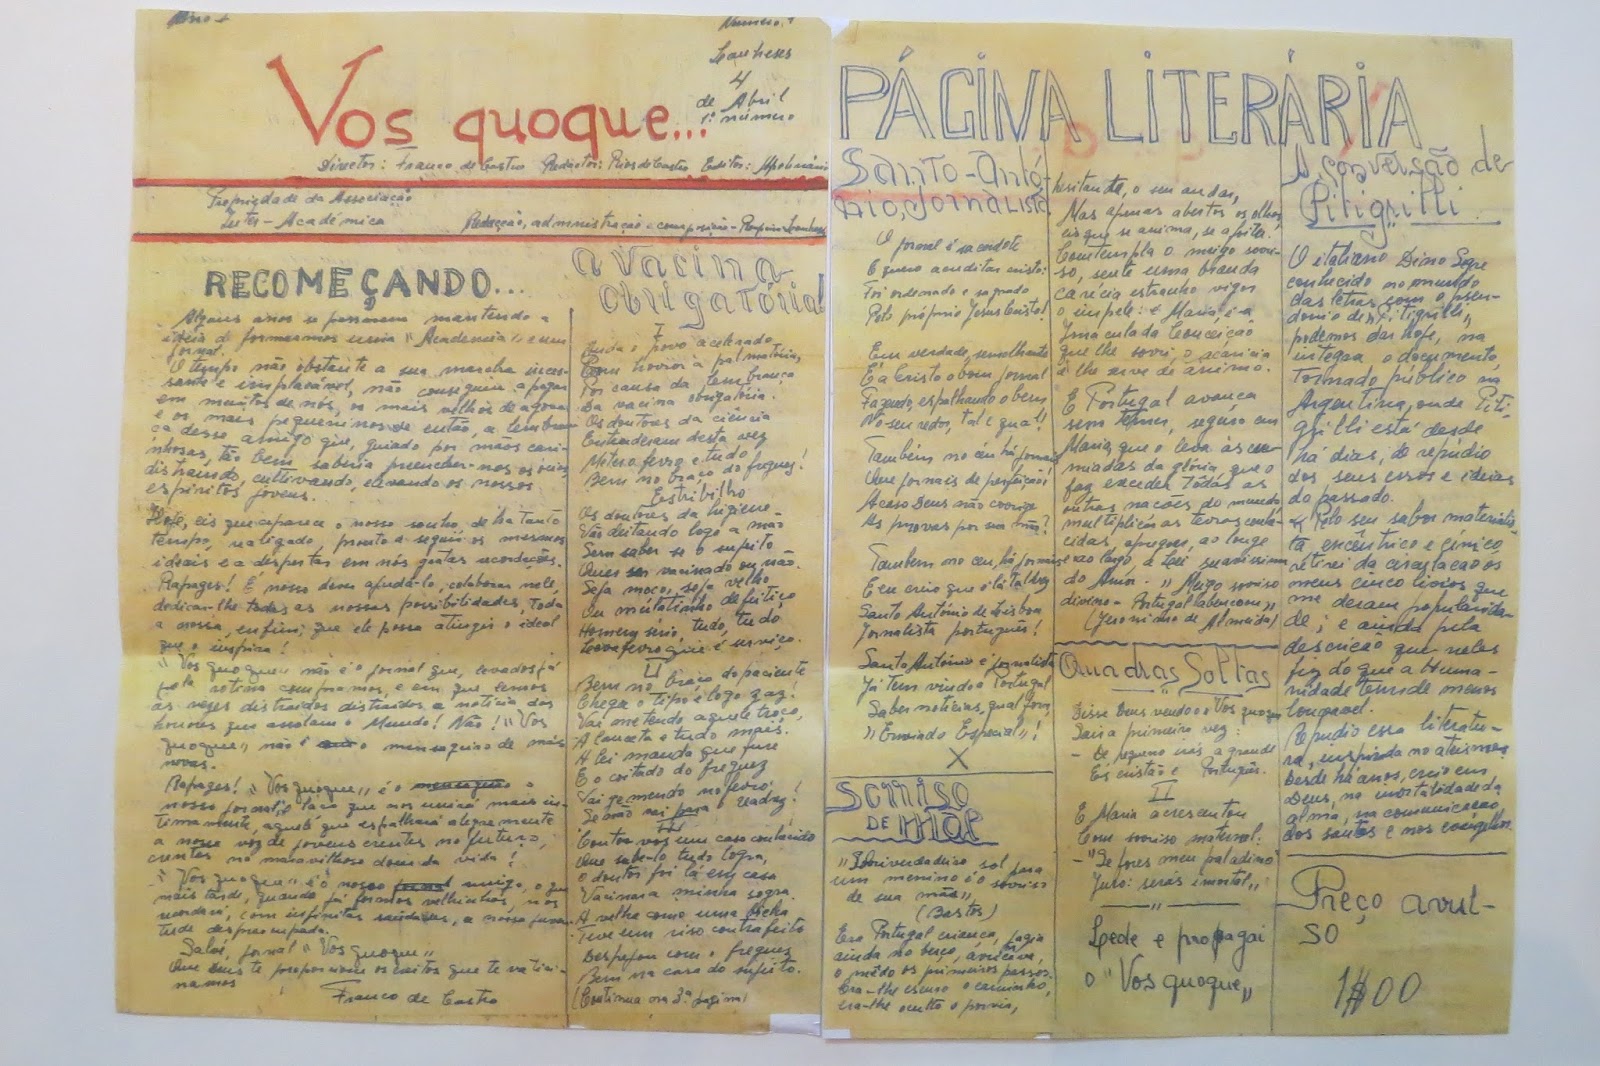 Ano 1
Número 1
Lanheses
4
de Abril
1º número
Vos quoque...
Director: Franco de Castro Redactor: Rios de Castro Editor:
Propriedade da Associação
Académica
Redacção, administração e composição-
RECOMEÇANDO...
Alguns anos se passaram mantendo a
ideia de formarmos uma "Academia" e um
jornal.
O tempo não obstante a sua marcha inces-
sante e implacável, não conseguiu apagar
em muitos de nós, os mais velhos de agora
e os mais pequeninos de então, a lembran-
ça desse amigo que, guiado por mãos cari-
nhosas, tão bem saberia preencher-nos os ócios,
distraindo, cultivando, elevando os nossos
espíritos jovens.
Hoje, eis que aparece o nosso sonho, de há tanto
tempo, realizado, pronto a seguir os mesmos
ideais e a despertar em nós gratas recordações.
Rapazes! É nosso dever ajudá-lo, colaborar nele,
dedicar-lhe todas as nossas possibilidades, toda
a nossa, enfim; que ele possa atingir o ideal
que o inspira!
"Vos quoque" não é o jornal que, levados já
pela rotina compramos, e em que lemos
às vezes distraídos distraídos a notícia dos
horrores que assolam o Mundo! Não! "Vos
quoque" não é o mensageiro de más
novas.
Rapazes! "Vos quoque" é o mensageiro o
nosso jornal, é laço que nos unirá mais in-
timamente, aquele que espalhará alegremente
a nossa voz de jovens crentes no futuro,
crentes no maravilhoso dom da vida!
"Vos quoque" é o nosso jornal amigo, o que
mais tarde, quando já formos velhinhos, nos
recordará, com infinitas saudades, a nossa juven-
tude despreocupada.
Salvé, jornal "Vos quoque"
Que Deus te proporcione os êxitos que te vatici-
namos
Franco de Castro
A Vacina
Obrigatória!
I
Anda o povo acelerado
Com horror à palmatória,
Por causa da lembrança
Da vacina obrigatória.
Os doutores da ciência
Entenderam desta vez
Meter o ferro e tudo
Bem no braço do freguez!
Estribilho
Os doutores da higiene
Vão deitando logo a mão
Sem saber se o sujeito
Quer ser vacinado ou não.
Seja moço, seja velho
Ou mulatinho de feitiço
Homem sério, tudo, tudo,
ferro que é serviço.
II
Bem no braço do paciente
Chega o tipo e logo zaz!
Vai metendo aquele troço,
A lanceta e tudo mais.
A lei manda que fure
E o coitado do freguez
Vai gemendo no ferro,
Se não vai para o xadrez!
III
Contou-vos um caso
Que sabê-lo tudo logra,
O doutor foi lá em casa
Vacinar a minha sogra.
A velha como uma bicha
Teve um riso contrafeito
com o freguez
Bem na cara do sujeito.
(Continua na 3ª página)
PÁGINA LITERÁRIA
Santo-Antó-
nio, Jornalista
O jornal é sacerdote
E quero acreditar nisto:
Foi ordenado e sagrado
Pelo próprio Jesus Cristo!
Em verdade, semelhante
É a Cristo o bom jornal
Fazendo, espalhando o bem
No seu redor, tal e qual!
Também no céu há jornais
Que jornais de perfeição!
Acaso Deus não corrige
As provas por sua mão?
Também no céu, há jornais
E eu creio que é lá talvez
Santo António de Lisboa
Jornalista português!
Santo António é jornalista
Já tem vindo a Portugal
Saber notícias, qual fora
"Enviado Especial"!
X
Sorriso
DE mãe
" verdadeiro sol para
um menino é o sorriso
de sua mãe"
(Bastos)
Era Portugal criança,
ainda no berço,
o mêdo os primeiros passos.
Era-lhe escuro o caminho,
era-lhe oculto o porvir,
hesitante, o seu andar,
Mas apenas abertos os olhos,
eis que se anima, se afoita.
Contempla o meigo sorri-
so, sente uma branda
carícia estranho vigor
o impele: é Maria, é a
Imaculada Conceição
que lhe sorri, o acaricia
e lhe serve de ânimo.
E Portugal avança
sem temer, seguro em
Maria, que o leva às cu-
miadas da glória, que o
faz exceder todas as
outras nações do mundo,
multiplica as terras conhe-
cidas, apregoa, ao longe
e ao largo, a Lei suavíssima
do Amor. "Meigo sorriso
divino - Portugal abençoou"
(Jerónimo de Almeida)
Quadras Soltas
"
Disse Deus vendo o "Vos quoque
Sair a primeira vez:
- De pequeno irás a grande
És cristão e Português.
II
E Maria acrescentou
Com sorriso maternal:
- "Se fores meu paladino
Juro: serás imortal"
"
Lede e propagai
o "Vos quoque"
A conversão de
Pitigrilli.
O italiano Dino Segre
conhecido no mundo
das letras com o pseu-
dónio de "Pitigrilli",
podemos dar hoje, na
íntegra o documento,
tornado público na
Argentina, onde Piti-
grilli está desde
há dias, de repúdio
dos seus erros e ideias
do passado.
"Pelo seu sabor materialis-
ta excêntrico e cínico
retirei da circulação os
meus cinco livros que
me deram popularida-
de; e ainda pela
descrição que neles
fiz do que a Huma-
nidade tem de menos
louvável.
Repudio essa literatu-
ra, inspirada no ateísmo.
Desde há anos, creio em
Deus, na imortalidade da
alma, na comunicação
dos santos e nos evangelhos.
Preço avul-
so
1$00